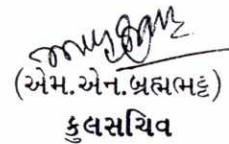 (એમ.એન.બ્રહ્મભટ્ટ)
કુલસચિવ